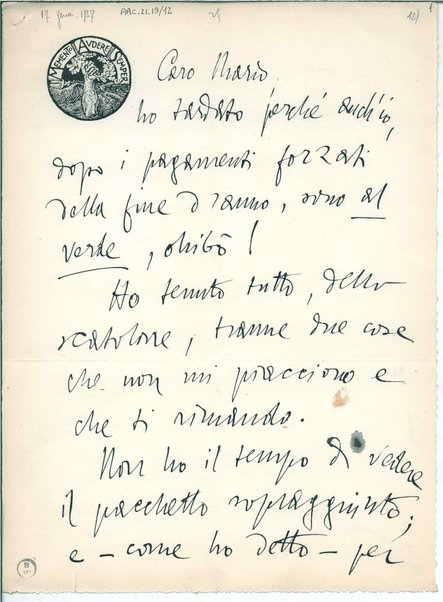 17 genn. 1927
ARC.21.13/12
12)
1
MEMENTO AUDERE SEMPER
Caro Mario,
ho tardato perché anch'io,
dopo i pagamenti forzati
della fine d'anno, sono al
verde, ohibò!
Ho tenuto tutto, dello
scatolone, tranne due cose
che non mi piacciono e
che ti rimando.
Non ho il tempo di vedere
il pacchetto sopraggiunto;
e – come ho detto – per